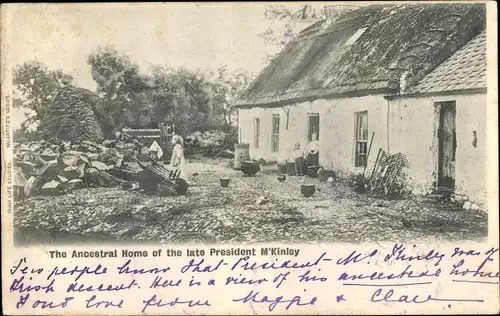 VALENTINE'S SERIES
IRISH LIFE SERIES
The Ancestral Home of the late President M'Kinley
Few people know that President Mc Kinley was of
Irish descent. Here is a view of his ancestral home
Fond love from Maggie & Clare